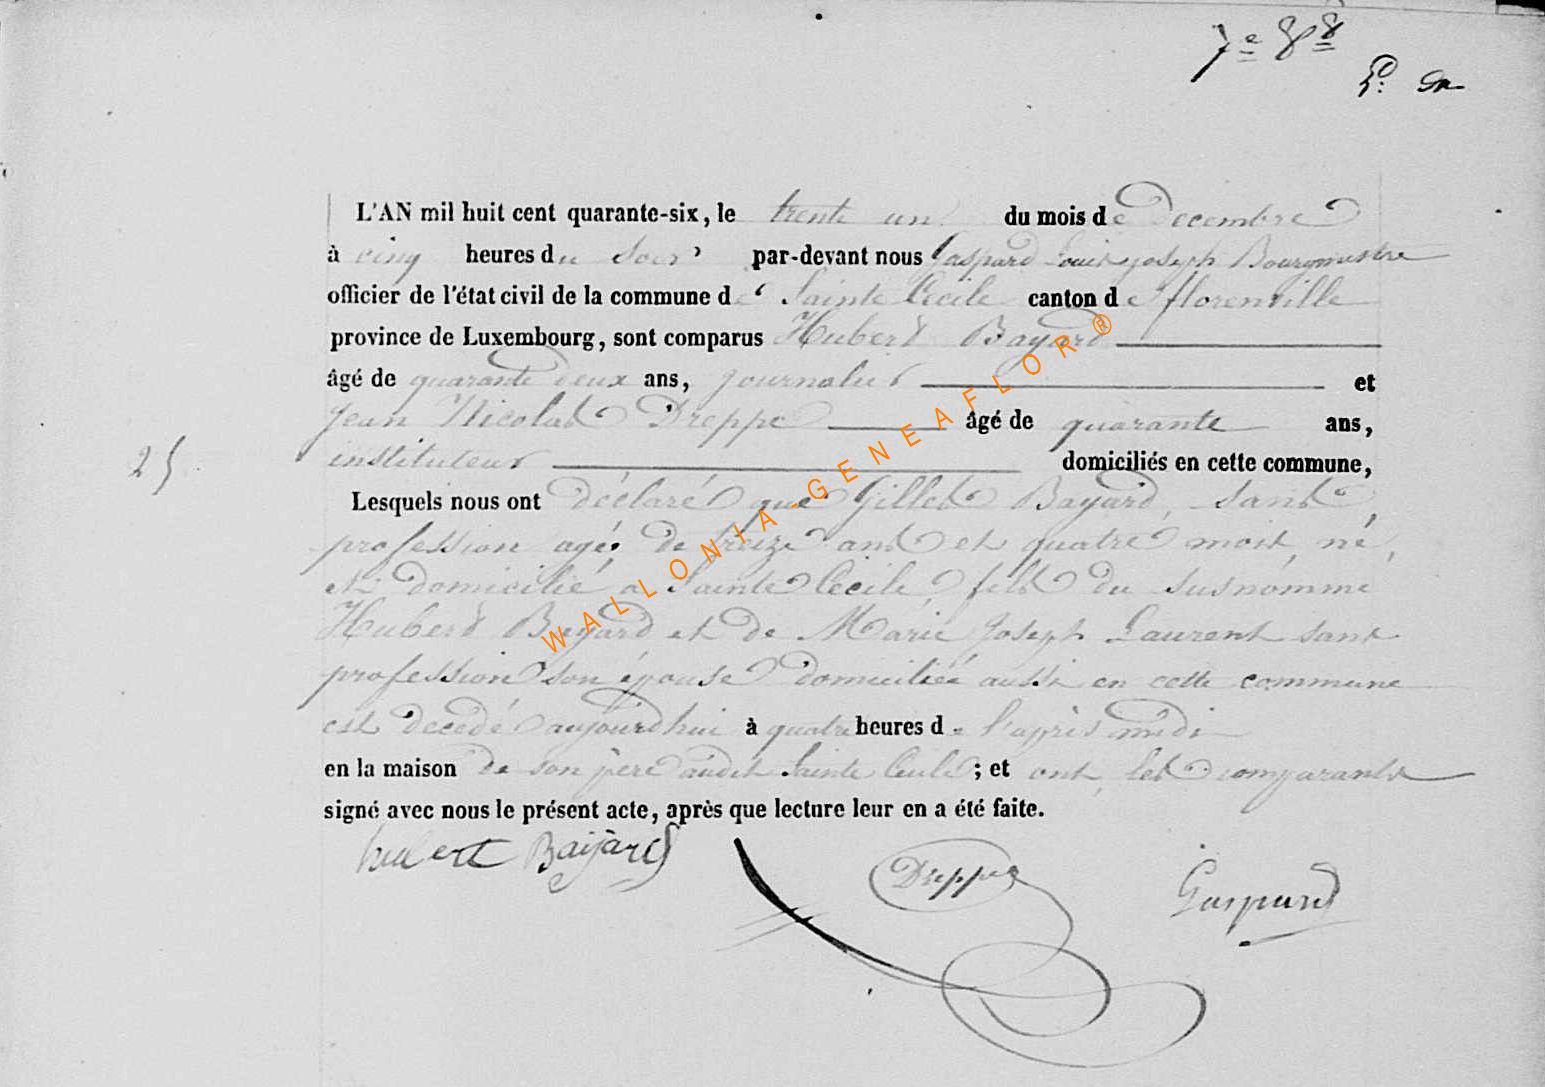 7e 88
L'AN mil huit cent quarante-six, le trente un du mois de Decembre
à cinq heures du soir par-devant nous Gaspard Louis joseph Bourgmestre
officier de l'état civil de la commune de Sainte Cecile canton de florenville
province de Luxembourg, sont comparus Hubert Bayard
âgé de quarante deux ans, journalier et
Jean Nicolas Dreppe âgé de quarante ans,
instituteur domiciliés en cette commune,
25
Lesquels nous ont déclaré que Gilles Bayard, sans
profession agé de treize ans et quatre mois, né,
et domicilié a Sainte Cecile, fils du susnommé
Hubert Bayard et de Marie Joseph Laurent sans
profession son épouse domiciliée aussi en cette commune
est decedé aujourdhui à quatre heures de l'après midi
en la maison de son père audit Sainte Cecile ; et ont les comparants
signé avec nous le présent acte, après que lecture leur en a été faite.
hubert Baijard Dreppe Gaspard
WALLONIA-GENEAFLOR®